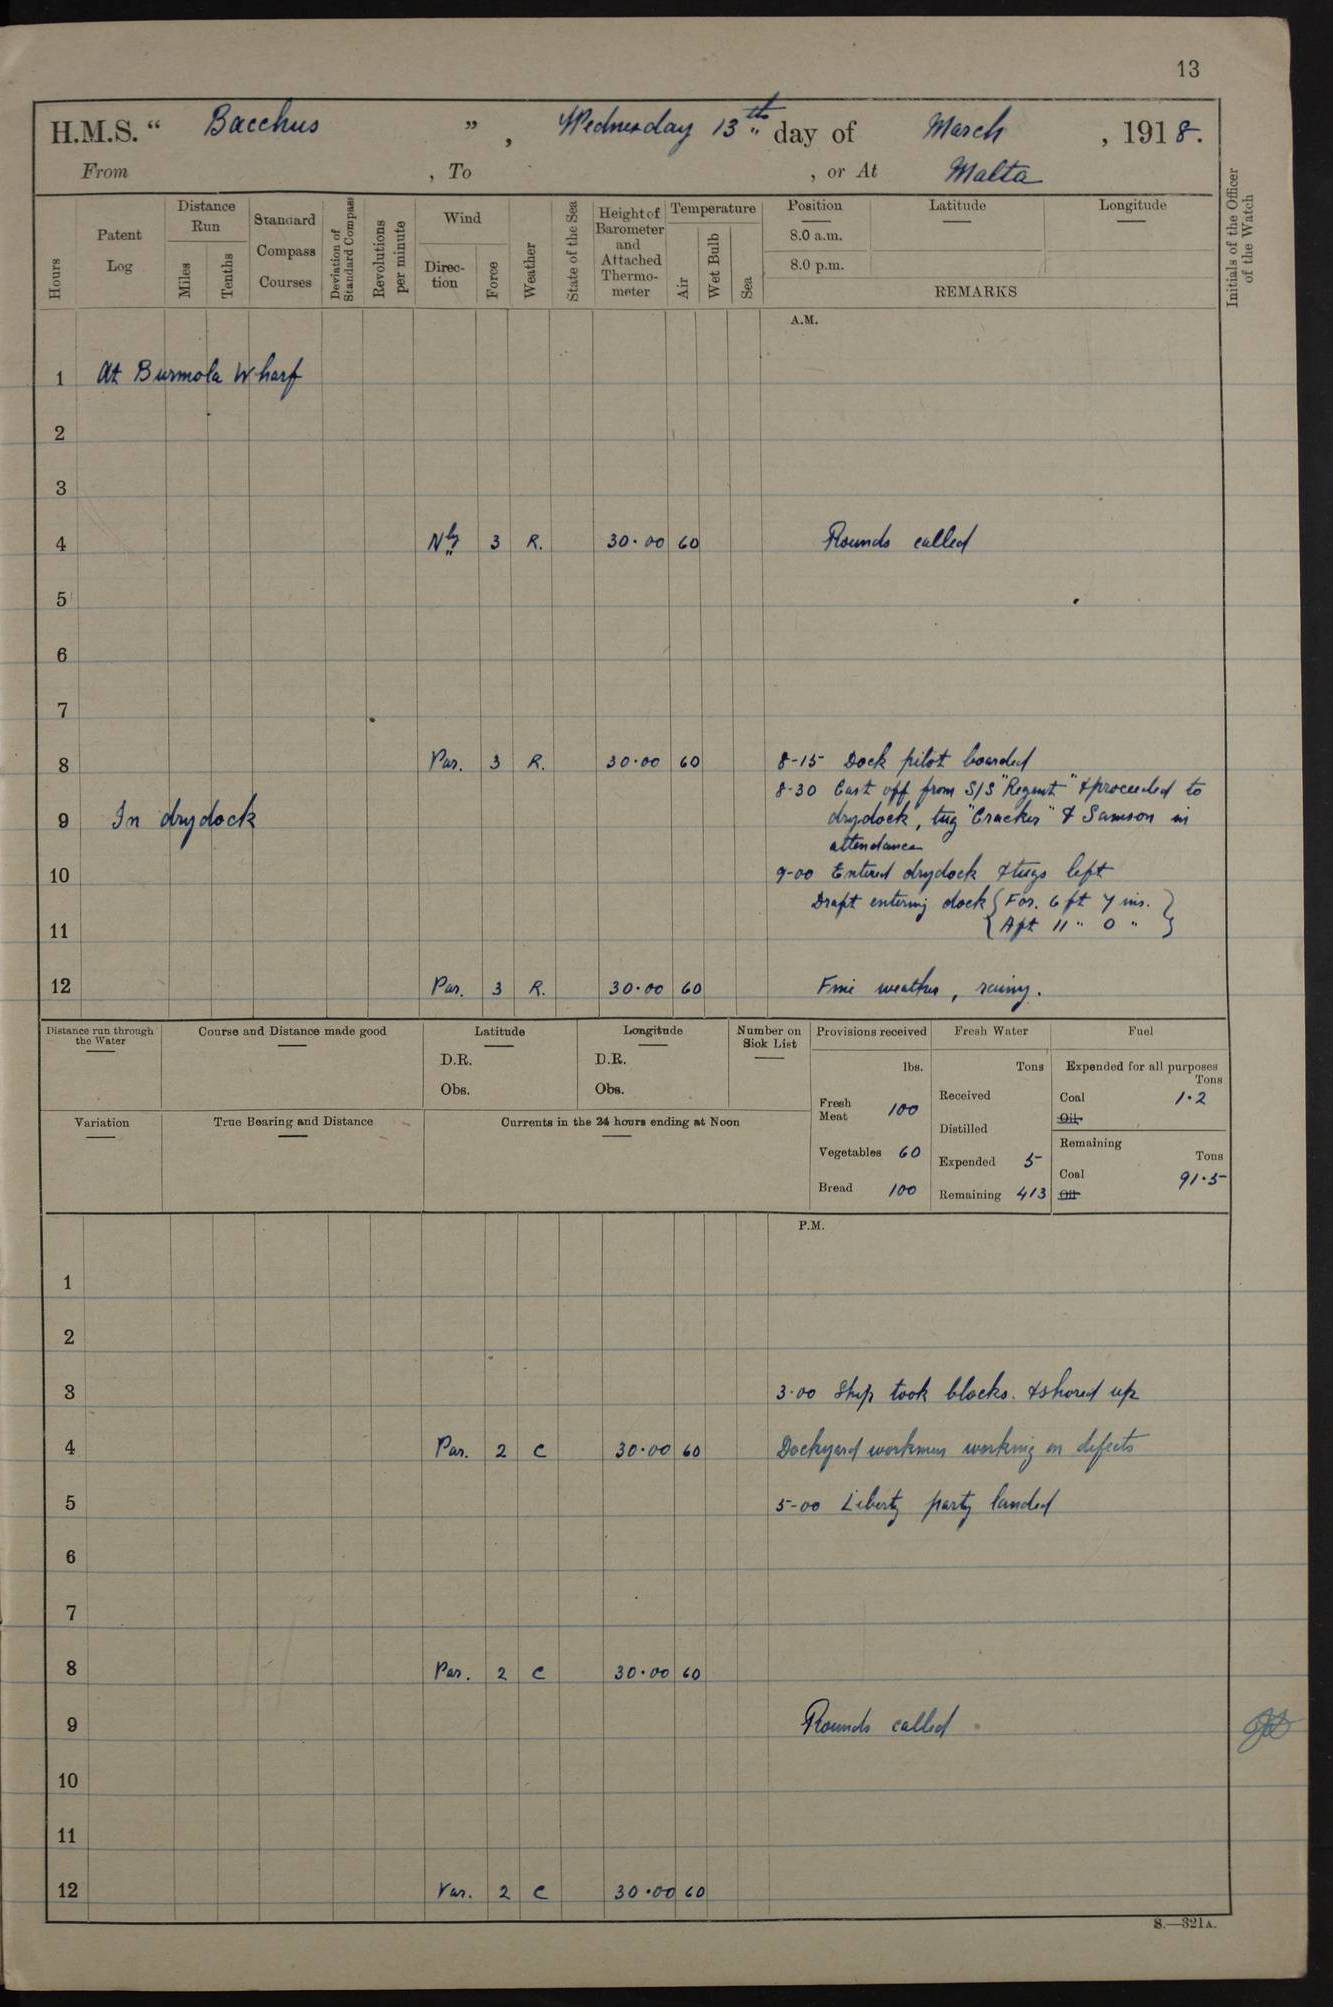 13
H.M.S. “ Bacchus ” , Wednesday 13th day of March , 1918.
From , To , or At Malta
Hours
Patent Log
Distance Run
Miles
Tenths
Standard Compass Courses
Deviation of Standard Compass
Revolutions per minute
Wind
Direc-tion
Force
Weather
State of the Sea
Height of Barometer and Attached Thermo-meter
Temperature
Air
Wet Bulb
Sea
Position
8.0 a.m.
8.0 p.m.
Latitude
Longitude
REMARKS
Initials of the Officer of the Watch
A.M.
1 At Burmola Wharf
2
3
4 Nly 3 R. 30.00 60 Rounds called
5
6
7
8 Var. 3 R. 30.00 60 8-15 Dock pilot boarded
8-30 Cast off from S/S "Regent" & proceeded to
9 In drydock drydock, tug "Cracker" & Samson in
attendance
10 9-00 Entered drydock & tugs left
Draft entering dock { For. 6 ft 7 ins. }
11 { Aft 11 " 0 " }
12 Var. 3 R. 30.00 60 Fine weather, rainy.
Distance run through the Water
Course and Distance made good
Latitude
D.R.
Obs.
Longitude
D.R.
Obs.
Number on Sick List
Provisions received
lbs.
Fresh Meat 100
Vegetables 60
Bread 100
Fresh Water
Tons
Received
Distilled
Expended 5
Remaining 413
Fuel
Expended for all purposes
Tons
Coal 1.2
Oil
Remaining
Tons
Coal 91.5
Oil
Variation
True Bearing and Distance
Currents in the 24 hours ending at Noon
P.M.
1
2
3 3.00 Ship took blocks. & shored up
4 Var. 2 C 30.00 60 Dockyard workmen working on defects
5 5-00 Liberty party landed
6
7
8 Var. 2 C 30.00 60
9 Rounds called
10
11
12 Var. 2 C 30.00 60
S.—321A.